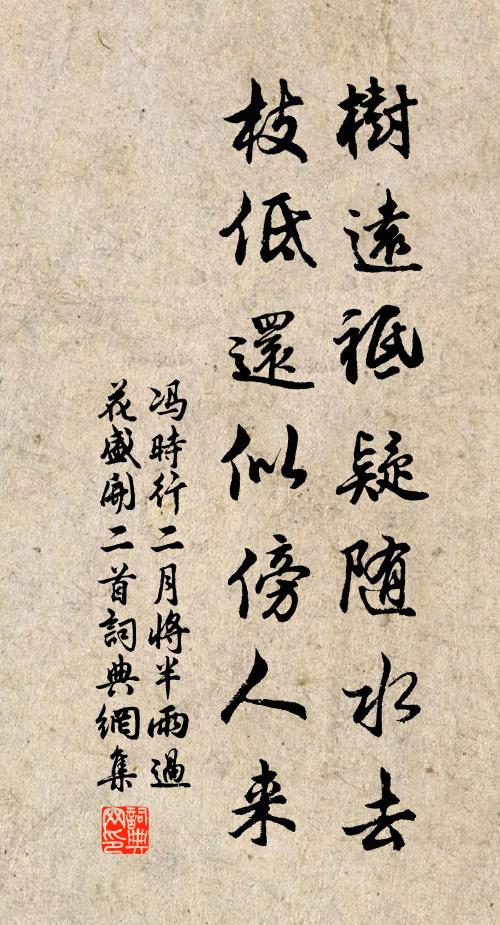 樹遠祗疑随水去
枝低還似傍人来
冯時行二月將半雨過
花盛開二首詞典網集
詞典網印